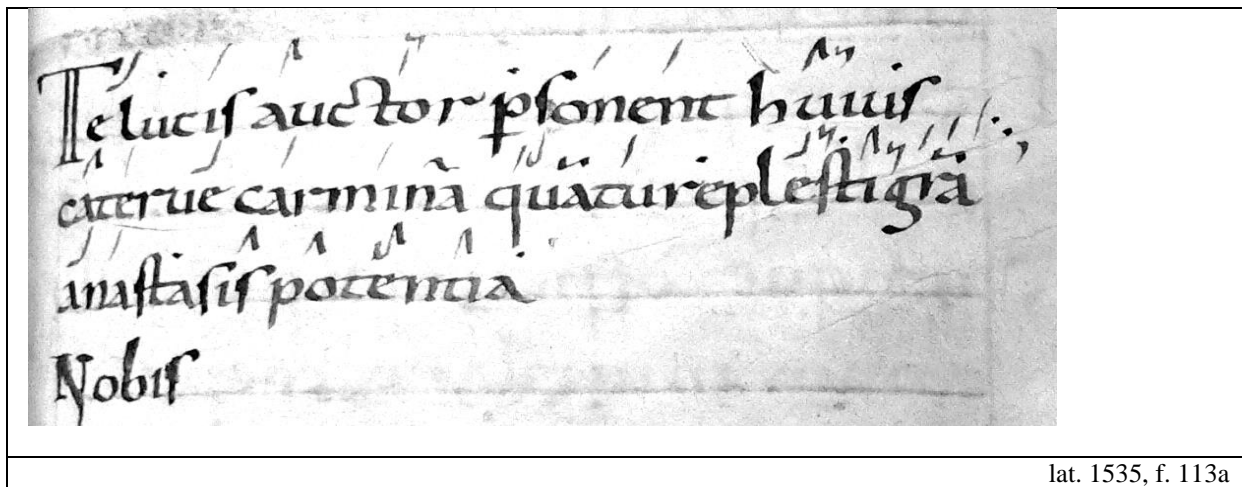 Te lucis auctor ꝑsonent huius
caterue carminā quā tu replesti grā
anastasis potentia
Nobis
lat. 1535, f. 113a